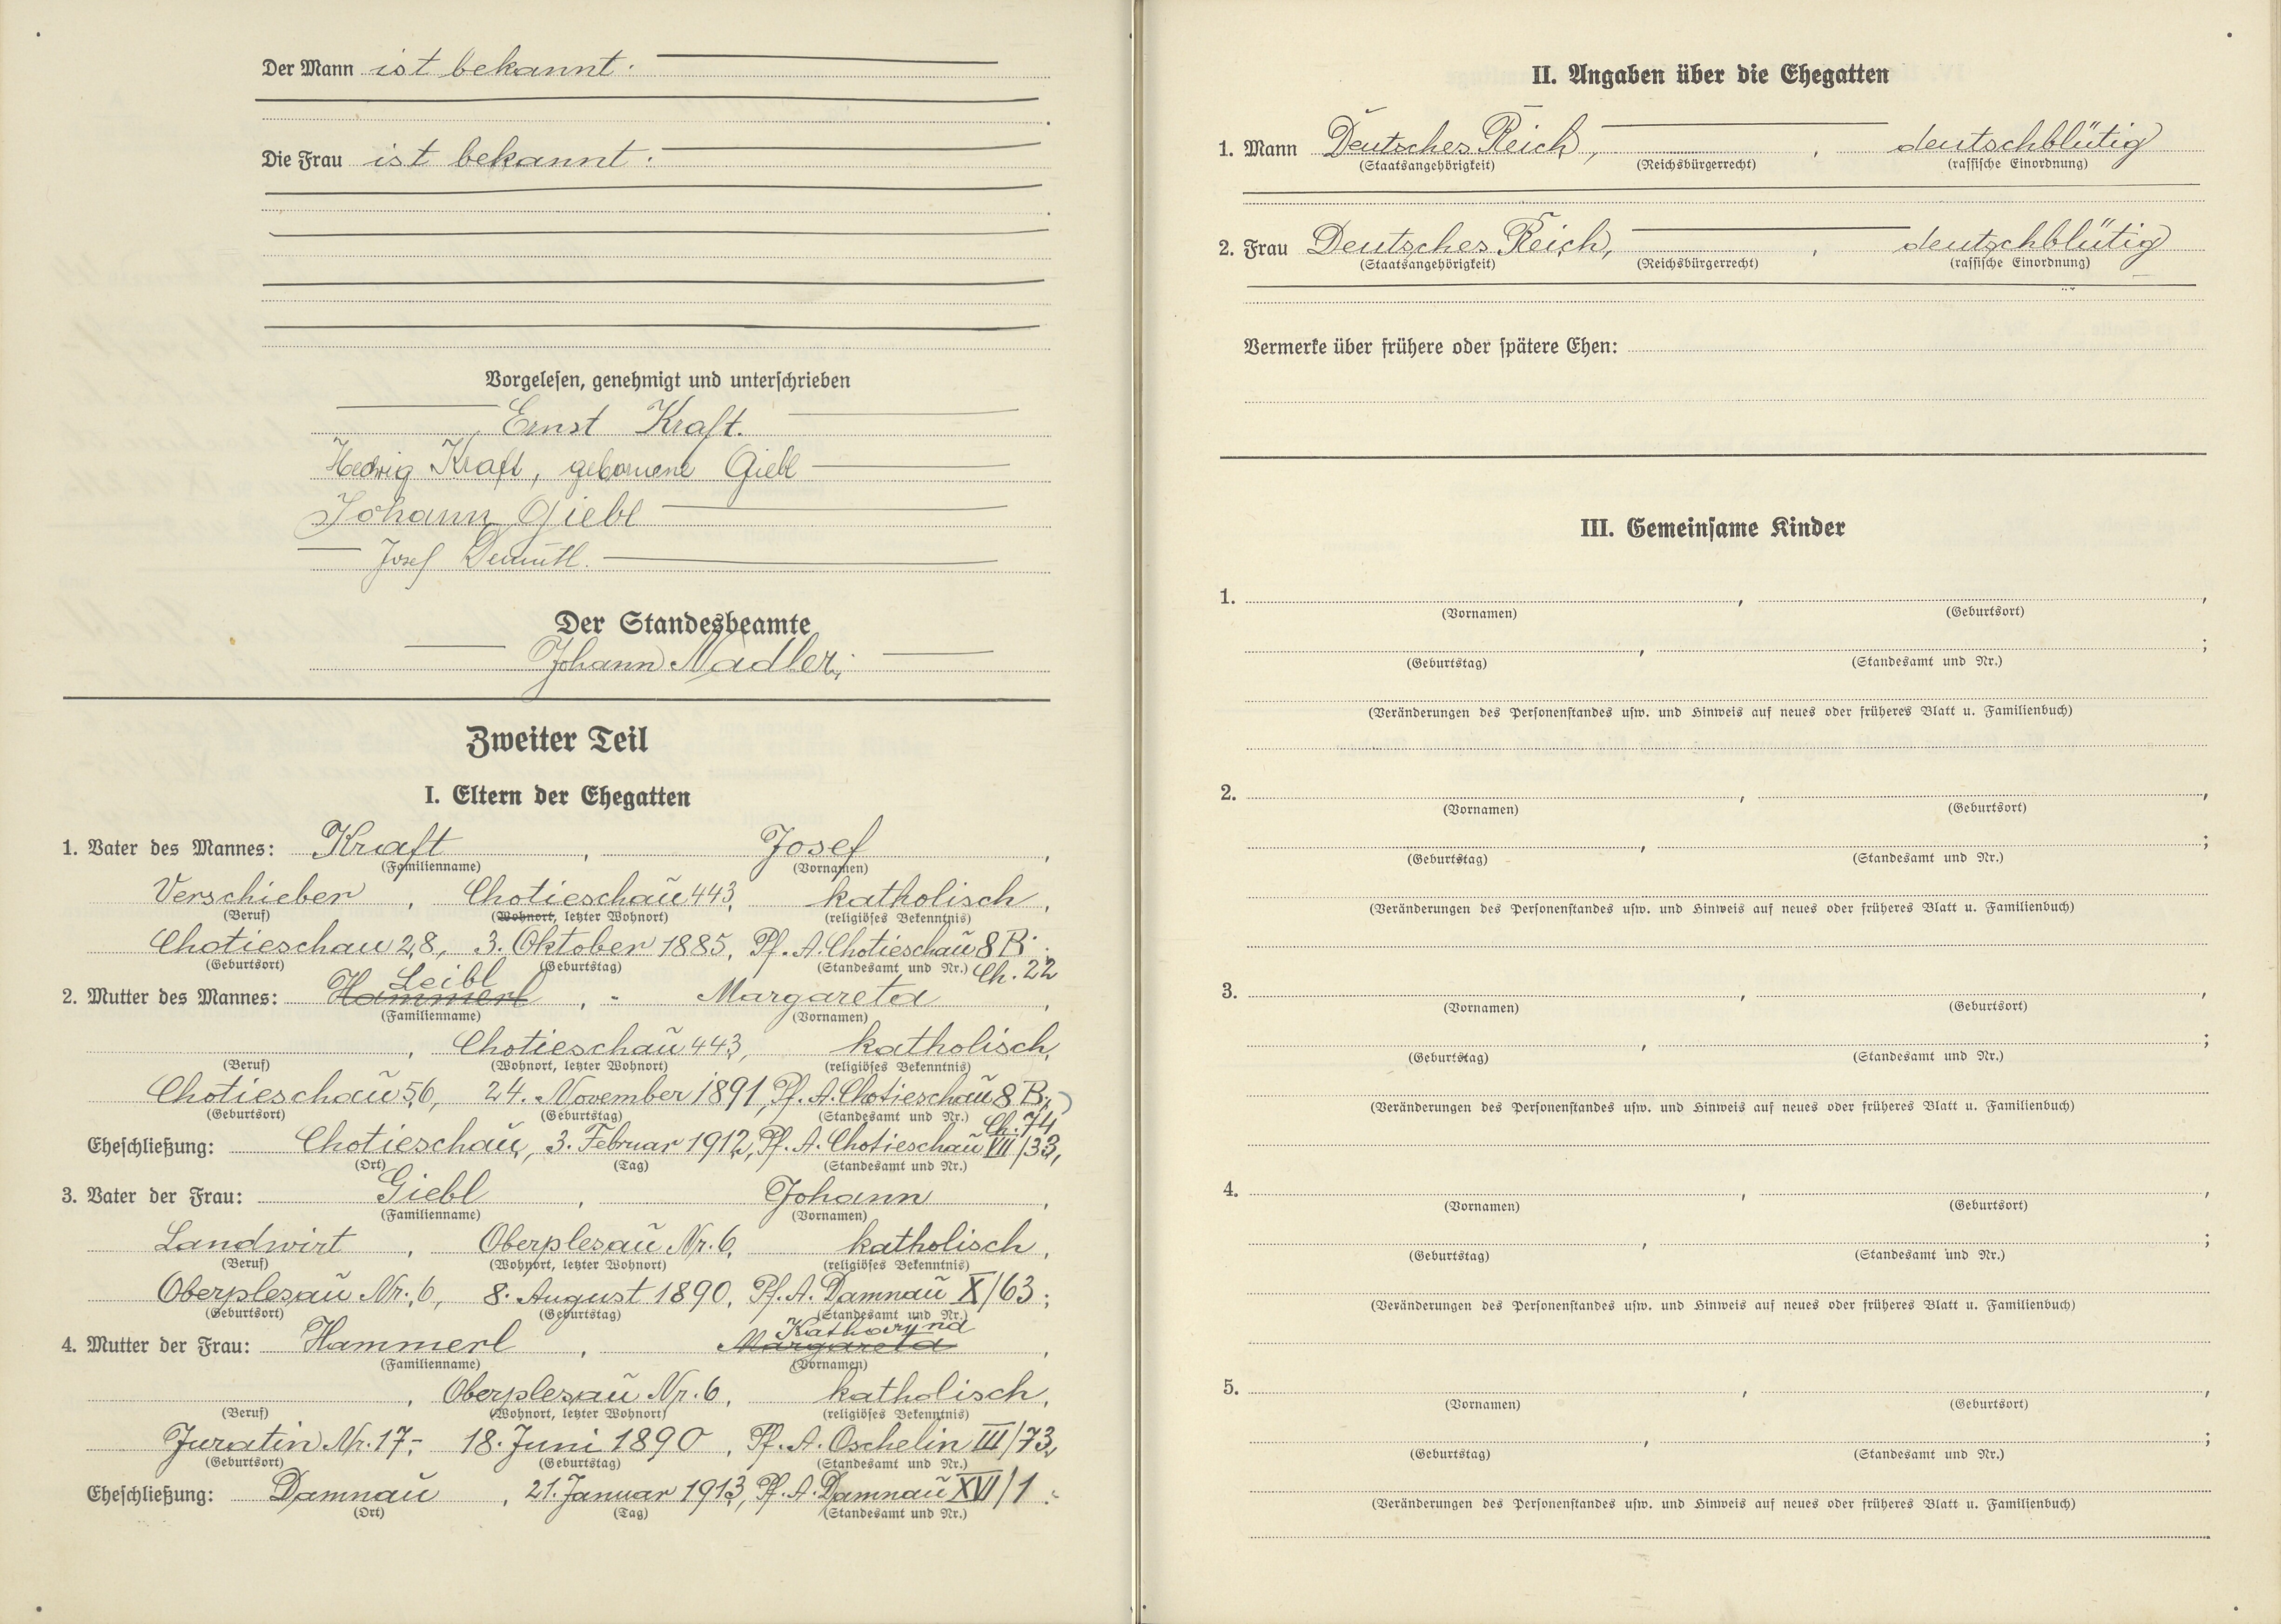 Der Mann ist bekannt.
Die Frau ist bekannt.
Vorgelesen, genehmigt und unterschrieben
Ernst Kraft.
Hedwig Kraft, geborene Giebl
Johann Giebl
Josef
Der Standesbeamte
Johann Nadler
Zweiter Teil
I. Eltern der Ehegatten
1. Vater des Mannes: Kraft, Josef,
(Familienname) (Vornamen)
Verschieber, Chotieschau 443, katholisch,
(Beruf) (Wohnort, letzter Wohnort) (religiöses Bekenntnis)
Chotieschau 28, 3. Oktober 1885, Pf. A. Chotieschau 8 B;
(Geburtsort) (Geburtstag) (Standesamt und Nr.) Ch. 22
Leibl
2. Mutter des Mannes: Hammerl, Margareta,
(Familienname) (Vornamen)
, Chotieschau 443, katholisch,
(Beruf) (Wohnort, letzter Wohnort) (religiöses Bekenntnis)
Chotieschau 56, 24. November 1891, Pf. A. Chotieschau 8 B;
(Geburtsort) (Geburtstag) (Standesamt und Nr.) Ch. 74
Eheschließung: Chotieschau, 3. Februar 1912, Pf. A. Chotieschau VII/33,
(Ort) (Tag) (Standesamt und Nr.)
3. Vater der Frau: Giebl, Johann,
(Familienname) (Vornamen)
Landwirt, Oberplesau Nr. 6, katholisch,
(Beruf) (Wohnort, letzter Wohnort) (religiöses Bekenntnis)
Oberplesau Nr. 6, 8. August 1890, Pf. A. Damnau X/63;
(Geburtsort) (Geburtstag) (Standesamt und Nr.)
4. Mutter der Frau: Hammerl, Margareta,
(Familienname) (Vornamen)
, Oberplesau Nr. 6, katholisch,
(Beruf) (Wohnort, letzter Wohnort) (religiöses Bekenntnis)
Juratin Nr. 17, 18. Juni 1890, Pf. A. Oschelin III/73,
(Geburtsort) (Geburtstag) (Standesamt und Nr.)
Eheschließung: Damnau, 21. Januar 1913, Pf. A. Damnau XVI/1.
(Ort) (Tag) (Standesamt und Nr.)
II. Angaben über die Ehegatten
1. Mann Deutsches Reich, , deutschblütig
(Staatsangehörigkeit) (Reichsbürgerrecht) (rassische Einordnung)
2. Frau Deutsches Reich, , deutschblütig
(Staatsangehörigkeit) (Reichsbürgerrecht) (rassische Einordnung)
Vermerke über frühere oder spätere Ehen:
III. Gemeinsame Kinder
1. , ,
(Vornamen) (Geburtsort)
, ;
(Geburtstag) (Standesamt und Nr.)
(Veränderungen des Personenstandes usw. und Hinweis auf neues oder früheres Blatt u. Familienbuch)
2. , ,
(Vornamen) (Geburtsort)
, ;
(Geburtstag) (Standesamt und Nr.)
(Veränderungen des Personenstandes usw. und Hinweis auf neues oder früheres Blatt u. Familienbuch)
3. , ,
(Vornamen) (Geburtsort)
, ;
(Geburtstag) (Standesamt und Nr.)
(Veränderungen des Personenstandes usw. und Hinweis auf neues oder früheres Blatt u. Familienbuch)
4. , ,
(Vornamen) (Geburtsort)
, ;
(Geburtstag) (Standesamt und Nr.)
(Veränderungen des Personenstandes usw. und Hinweis auf neues oder früheres Blatt u. Familienbuch)
5. , ,
(Vornamen) (Geburtsort)
, ;
(Geburtstag) (Standesamt und Nr.)
(Veränderungen des Personenstandes usw. und Hinweis auf neues oder früheres Blatt u. Familienbuch)